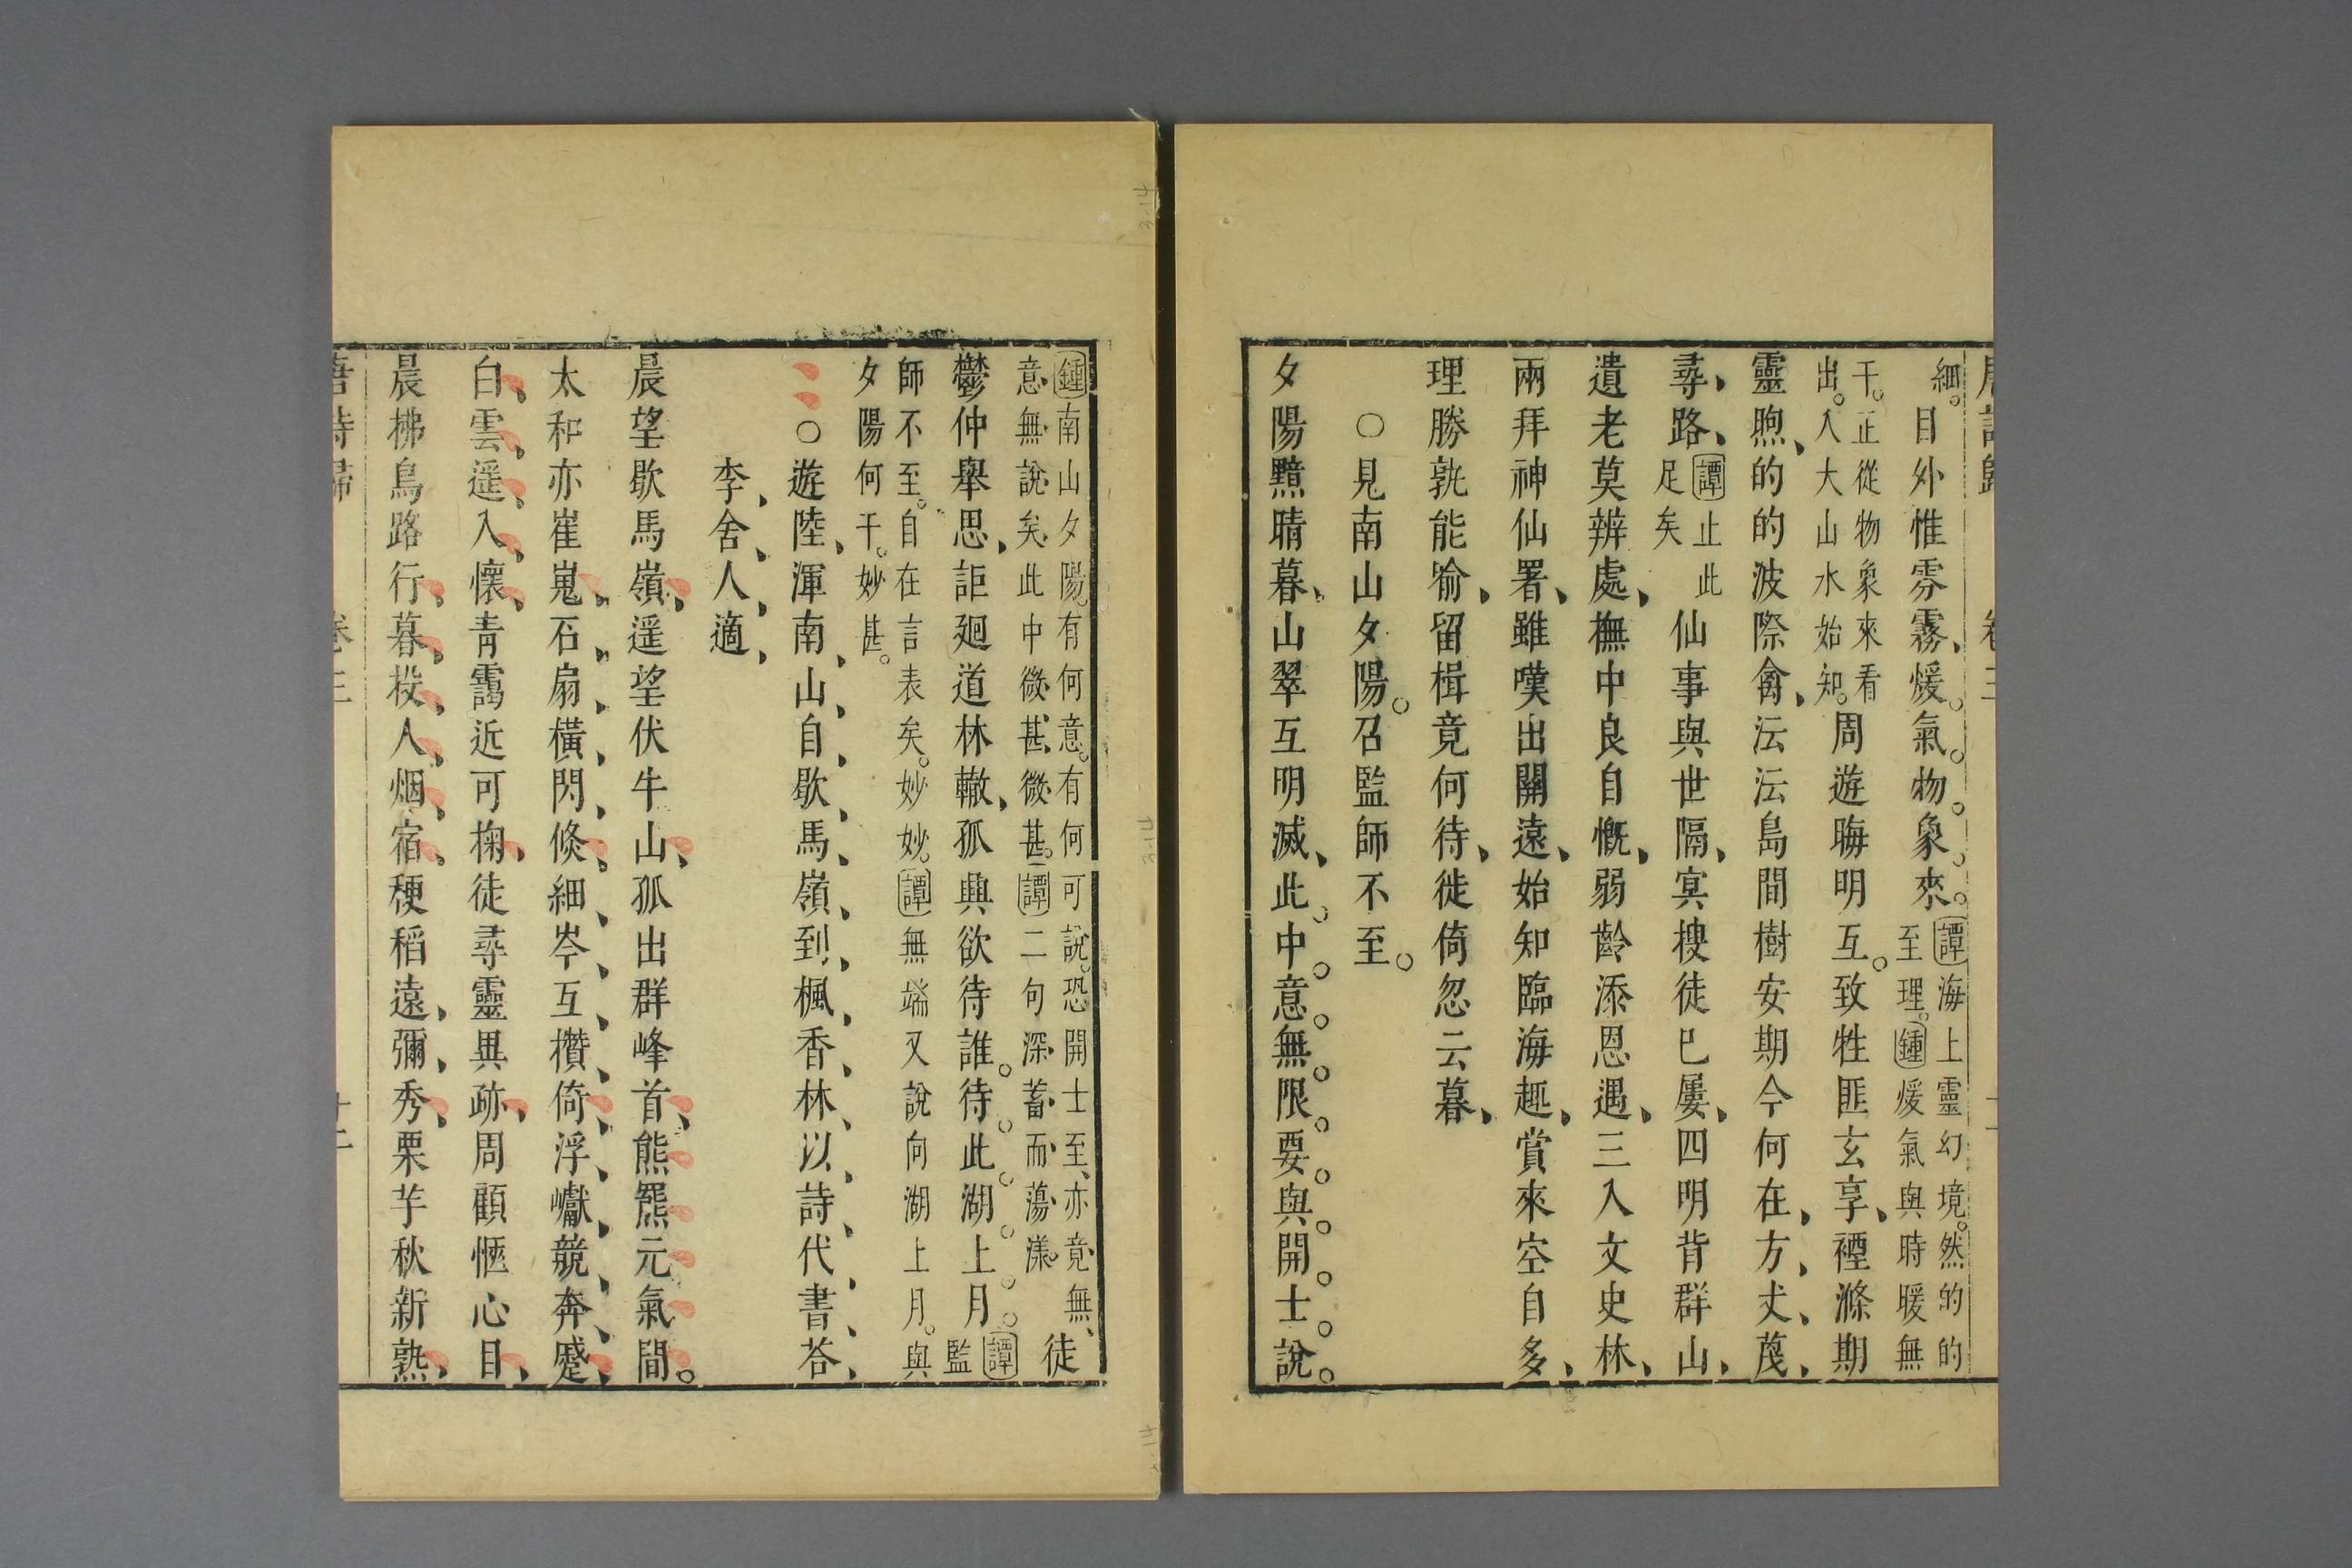 細目外惟雰霧煖氣物象來譚海上靈幻境然的的
至理鍾煖氣與時暖無
干正從物象來看
出入大山水始知周遊晦明互致牲匪玄享禋滌期
靈煦的的波際禽沄沄島間樹安期今何在方丈蔑
尋路譚止此
足矣仙事與世隔冥搜徒已屢四明背群山
遺老莫辨處撫中良自慨弱齡忝恩遇三入文史林
兩拜神仙署雖嘆出關遠始知臨海趣賞來空自多
理勝孰能喻留楫竟何待徙倚忽云暮
○見南山夕陽召監師不至
夕陽黯晴暮山翠互明滅此中意無限要與開士說
鍾南山夕陽有何意有何可說恐開士至亦竟無
意無說矣此中微甚微甚譚二句深蓄而蕩漾徒
鬱仲舉思詎廻道林轍孤興欲待誰待此湖上月譚
監
師不至自在言表矣妙妙譚無端又說向湖上月與
夕陽何干妙甚
○遊陸渾南山自歇馬嶺到楓香林以詩代書荅
李舍人適
晨望歇馬嶺遥望伏牛山孤出群峰首熊羆元氣間
太和亦崔嵬石扇橫閃倏細岑互攢倚浮巘競奔蹙
白雲遥入懷青靄近可掬徒尋靈異跡周顧愜心目
晨拂鳥路行暮投人烟宿稉稻遠彌秀栗芋秋新熟